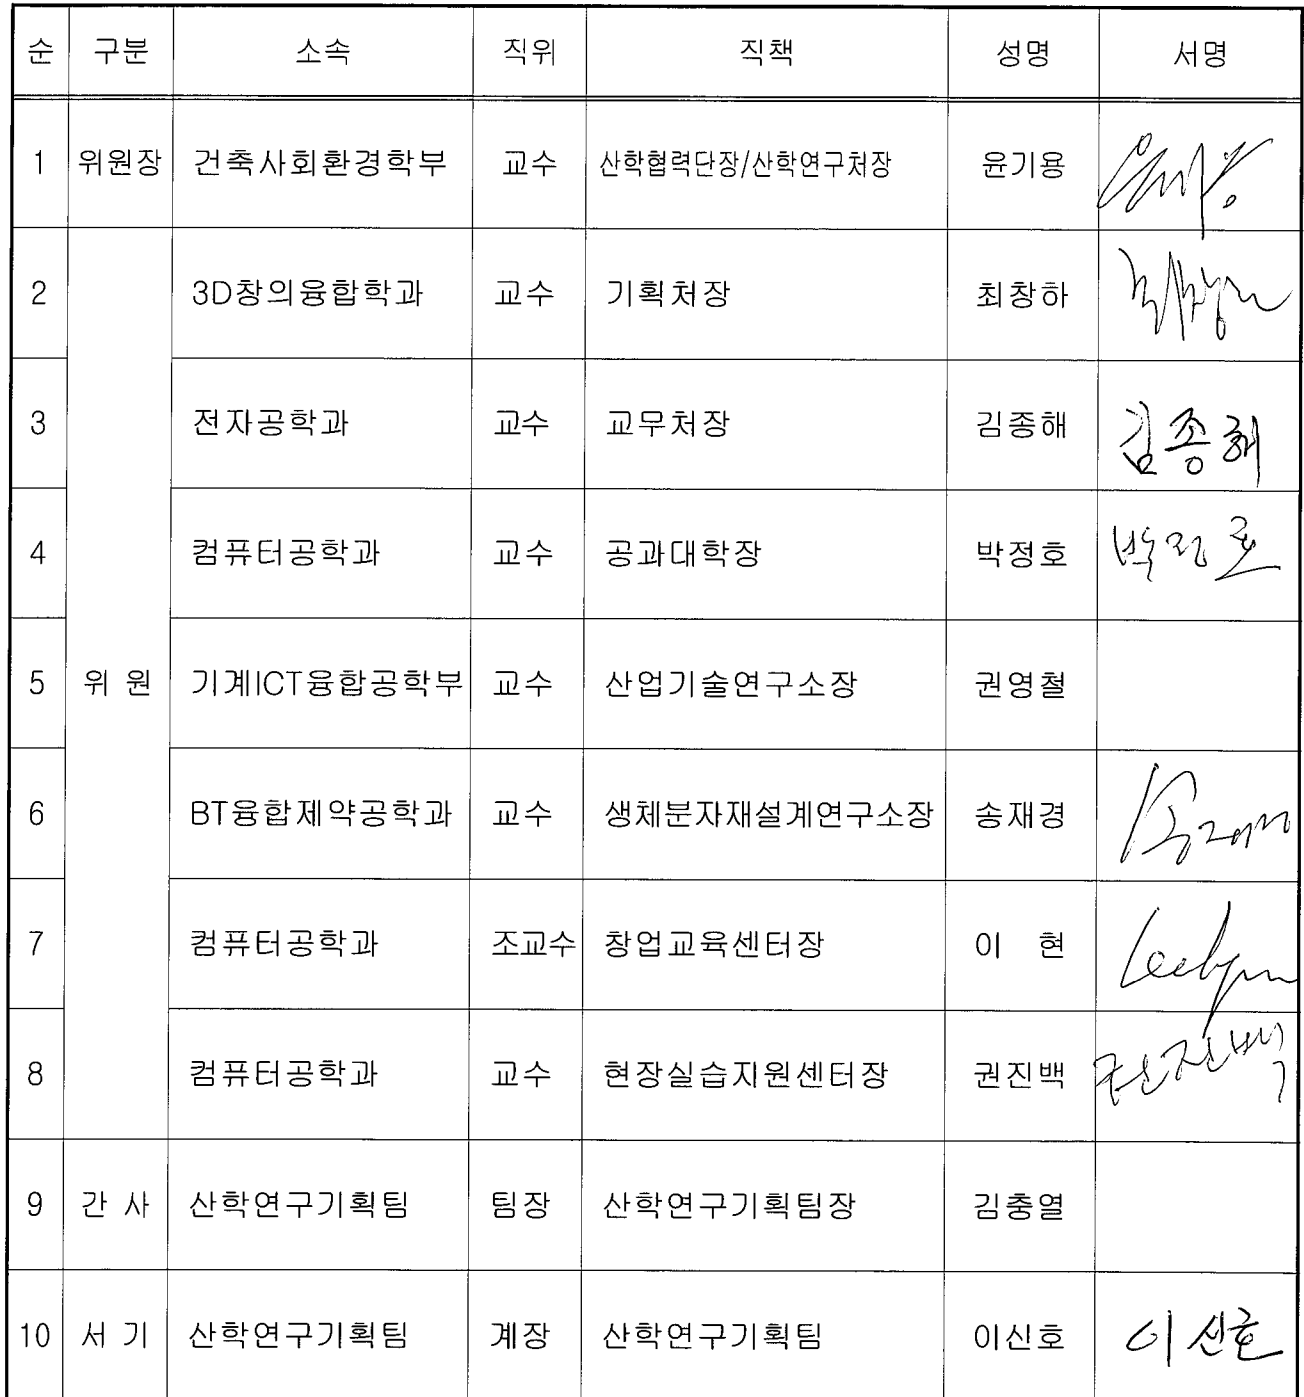 순 구분 소속 직위 직책 성명 서명
1 위원장 건축사회환경학부 교수 산학협력단장/산학연구처장 윤기용
2 3D창의융합학과 교수 기획처장 최창하
3 전자공학과 교수 교무처장 김종해 김종해
4 컴퓨터공학과 교수 공과대학장 박정호 박정호
5 위 원 기계ICT융합공학부 교수 산업기술연구소장 권영철
6 BT융합제약공학과 교수 생체분자재설계연구소장 송재경
7 컴퓨터공학과 조교수 창업교육센터장 이 현
8 컴퓨터공학과 교수 현장실습지원센터장 권진백 권진백
9 간 사 산학연구기획팀 팀장 산학연구기획팀장 김충열
10 서 기 산학연구기획팀 계장 산학연구기획팀 이신호 이신호